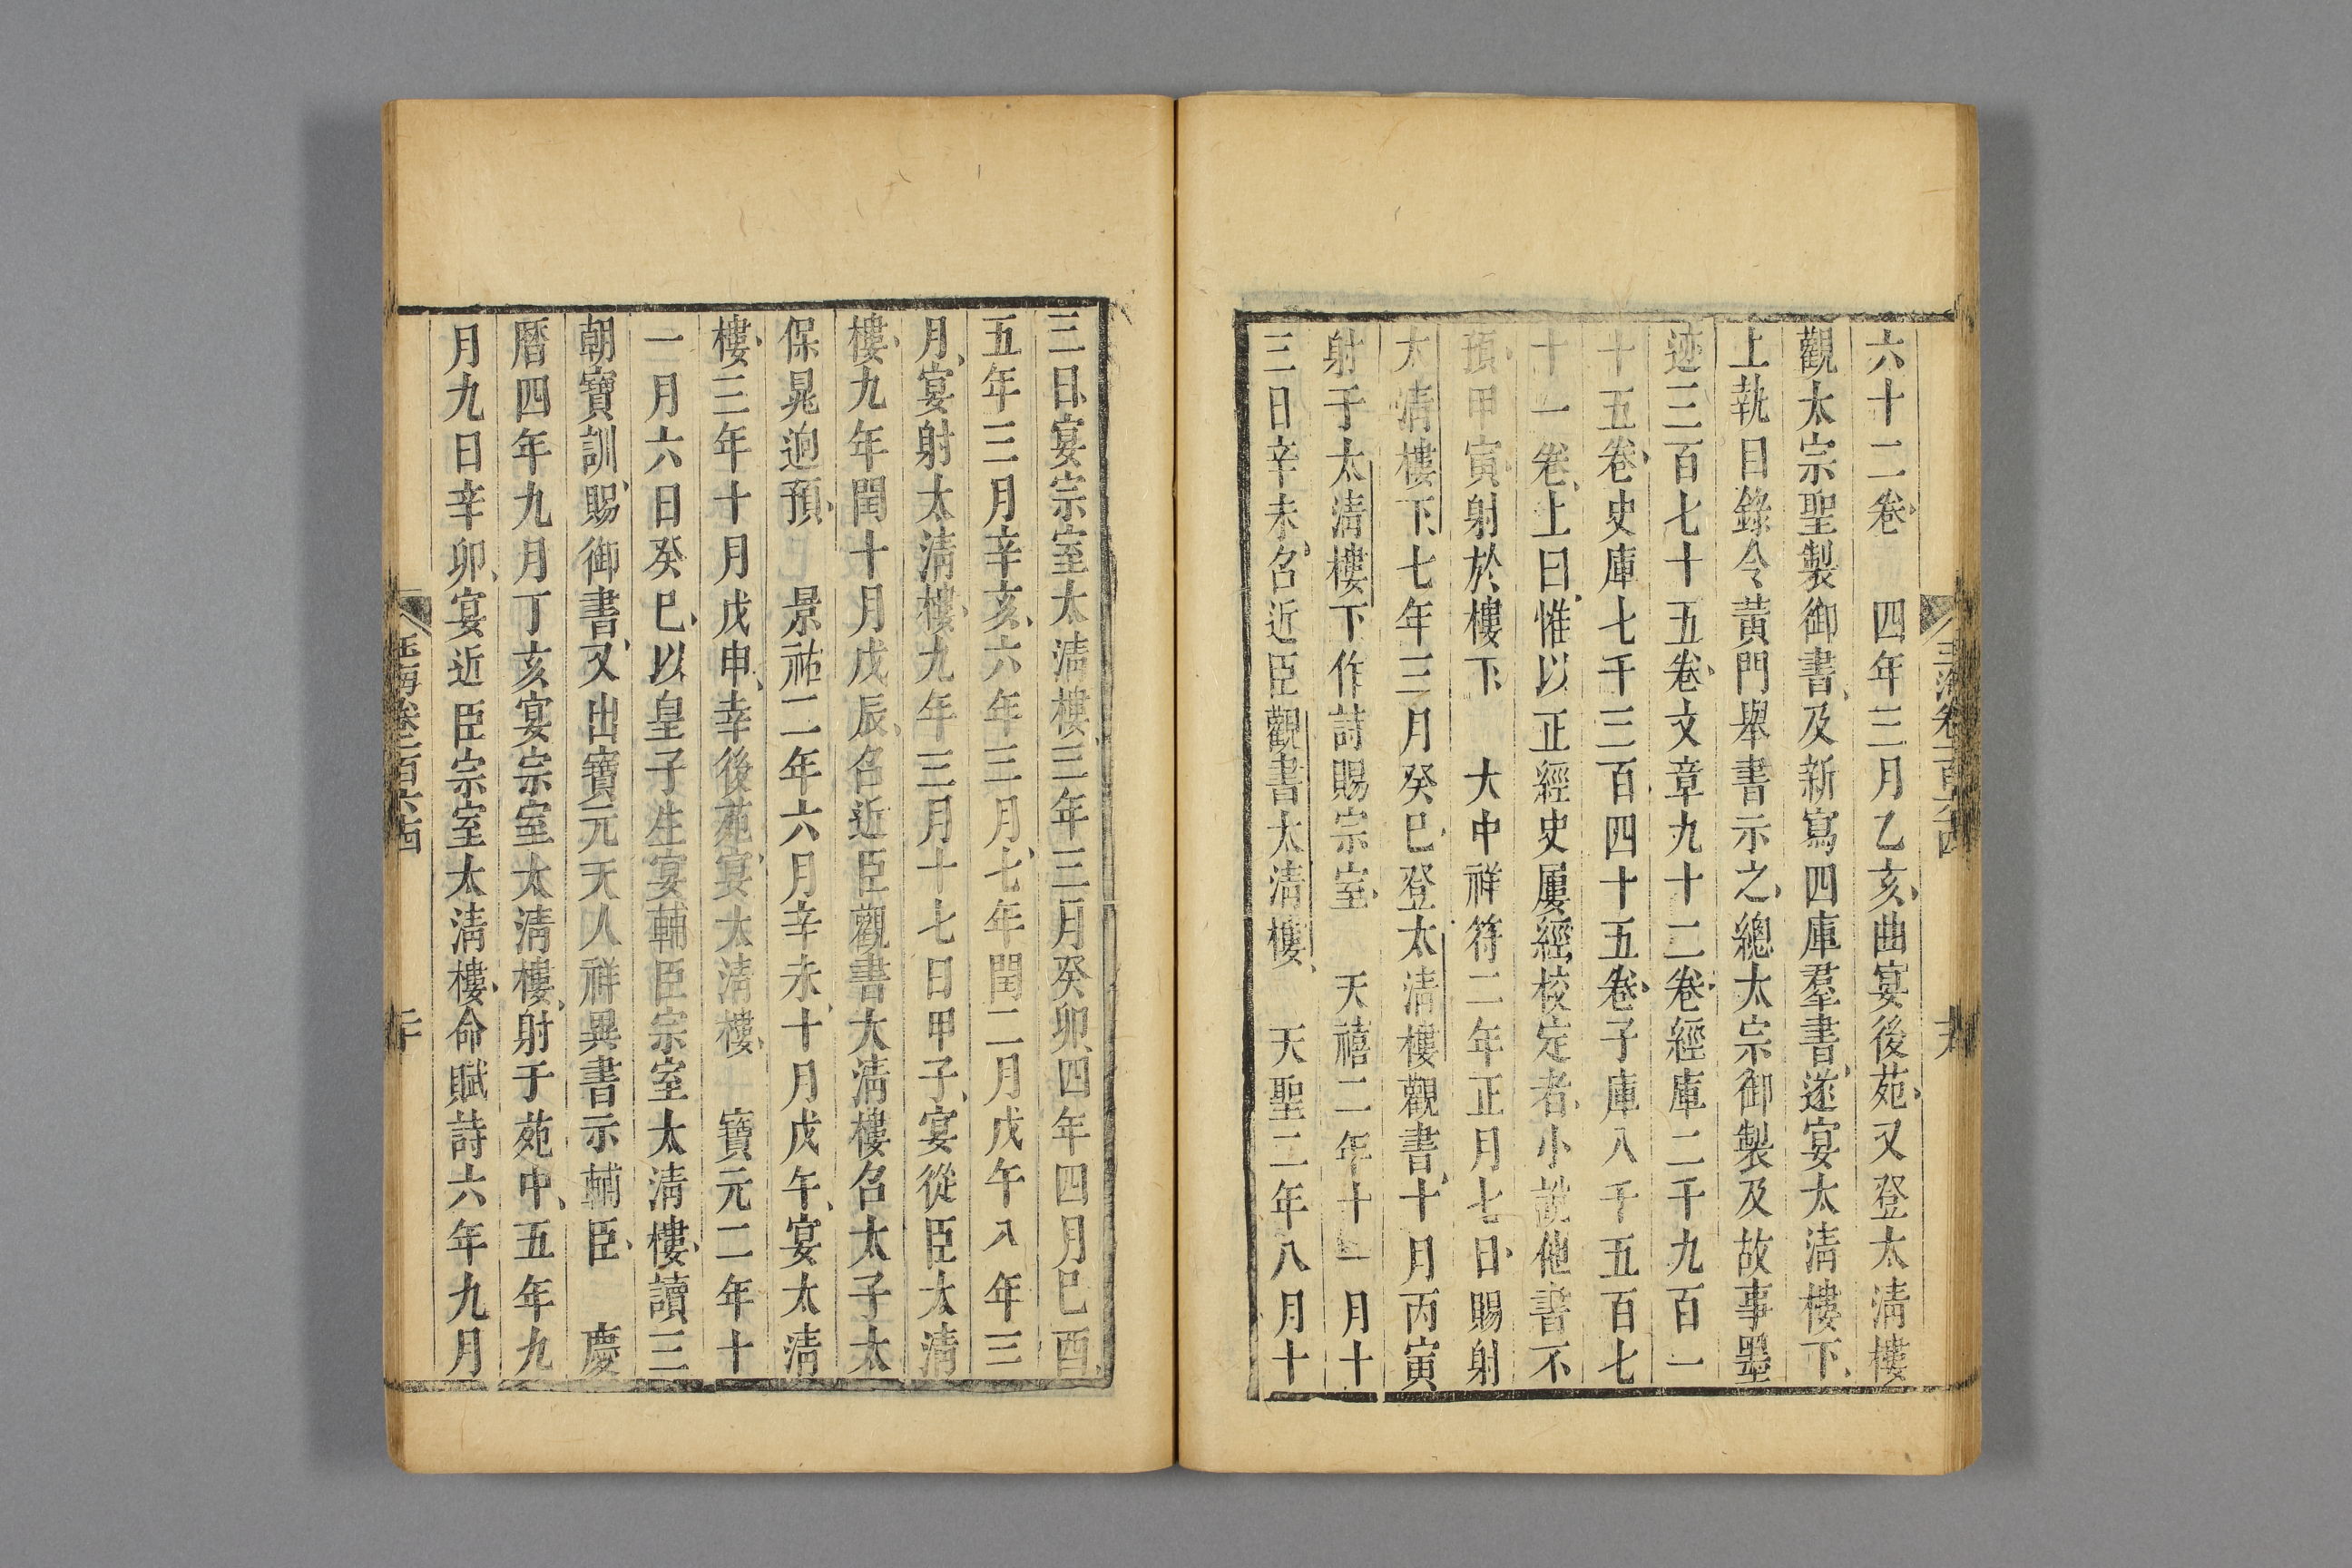 六十二卷　四年三月乙亥曲宴後苑又登太清樓
觀太宗聖製御書及新寫四庫羣書遂宴太清樓下
上執目錄令黃門舉書示之總太宗御製及故事墨
迹三百七十五卷文章九十二卷經庫二千九百一
十五卷史庫七千三百四十五卷子庫八千五百七
十一卷上曰惟以正經史屢經校定者小說他書不
預甲寅射於樓下　大中祥符二年正月七日賜射
太清樓下七年三月癸巳登太清樓觀書十月丙寅
射于太清樓下作詩賜宗室　天禧二年十一月十
三日辛未召近臣觀書太清樓　天聖二年八月十
三日宴宗室太清樓三年三月癸卯四年四月巳酉
五年三月辛亥六年三月七年閏二月戊午八年三
月宴射太清樓九年三月十七日甲子宴從臣太清
樓九年閏十月戊辰召近臣觀書太清樓召太子太
保晁逈預　景祐二年六月辛未十月戊午宴太清
樓三年十月戊申幸後苑宴太清樓　寶元二年十
一月六日癸巳以皇子生宴輔臣宗室太清樓讀三
朝寶訓賜御書又出寶元天人祥異書示輔臣　慶
曆四年九月丁亥宴宗室太清樓射于苑中五年九
月九日辛卯宴近臣宗室太清樓命賦詩六年九月
玉海卷一百六十四
二十